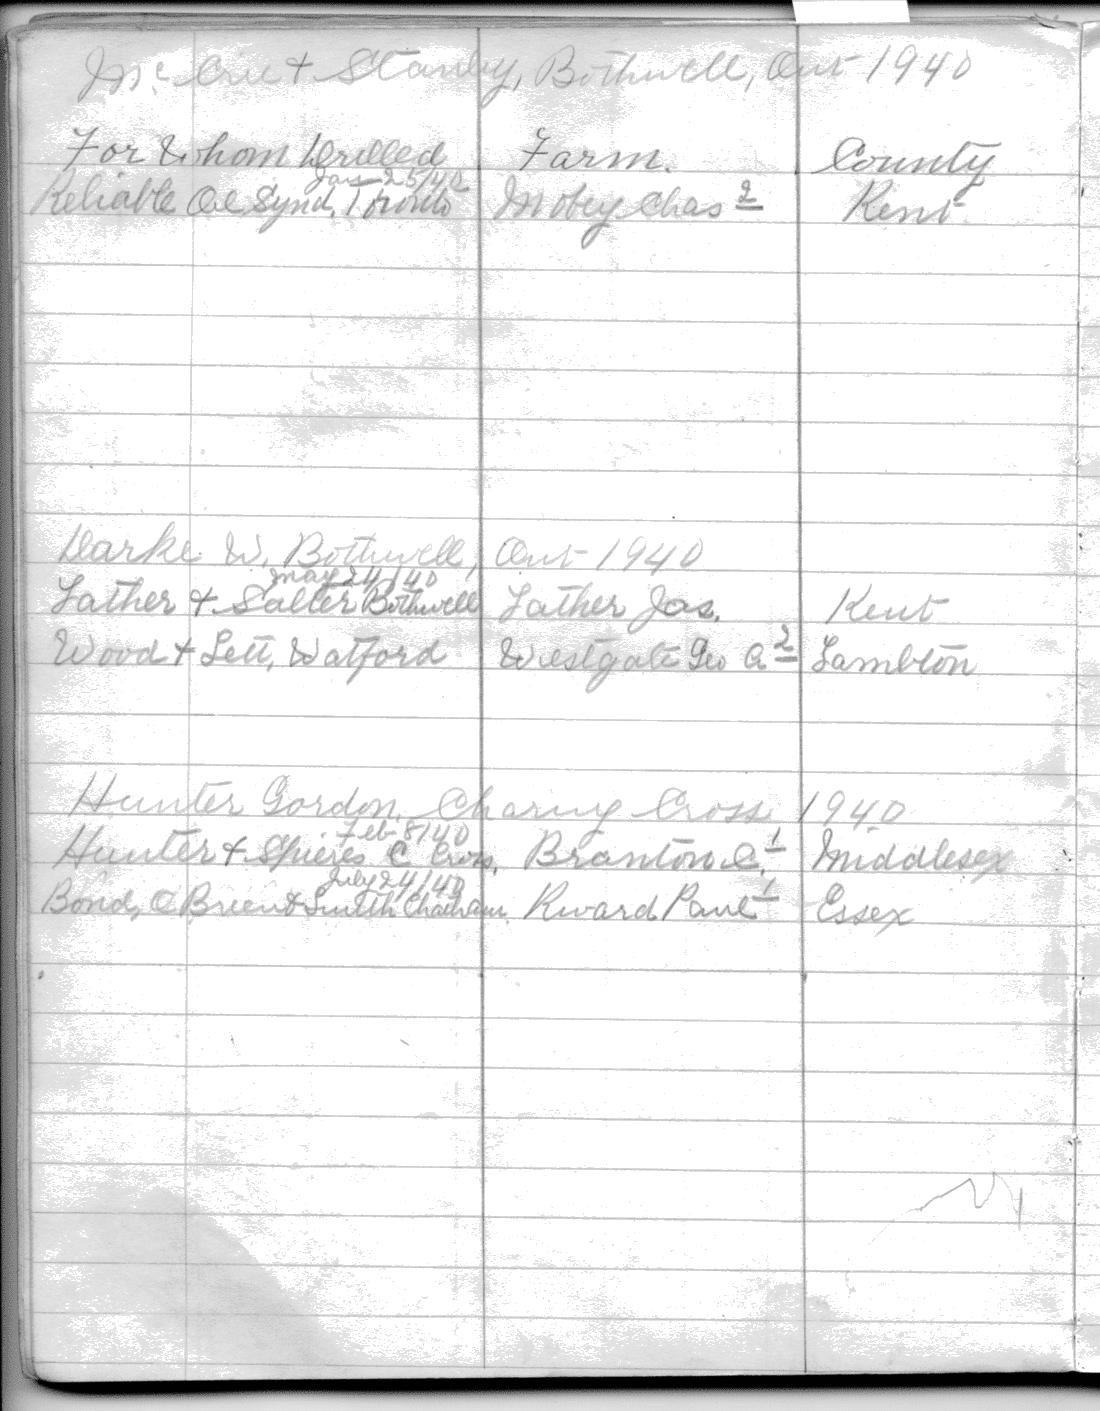 Mc Crie & Stanley, Bothwell, Ont 1940
For Whom Drilled Farm. County
Jan 25/40
Reliable Oil Synd, Toronto Mobey Chas 2 Kent
Darke W. Bothwell, Ont 1940
May 24/40
Lather & Salter Bothwell Lather Jas. Kent
Wood & Lett, Watford Westgate Geo A 2 Lambton
Hunter Gordon, Charing Cross 1940
Feb 8/40
Hunter & Spieres C Cross, Branton C. 1 Middlesex
July 24/40
Bond, O Brien & Smith Chatham. Rivard Paul 1 Essex